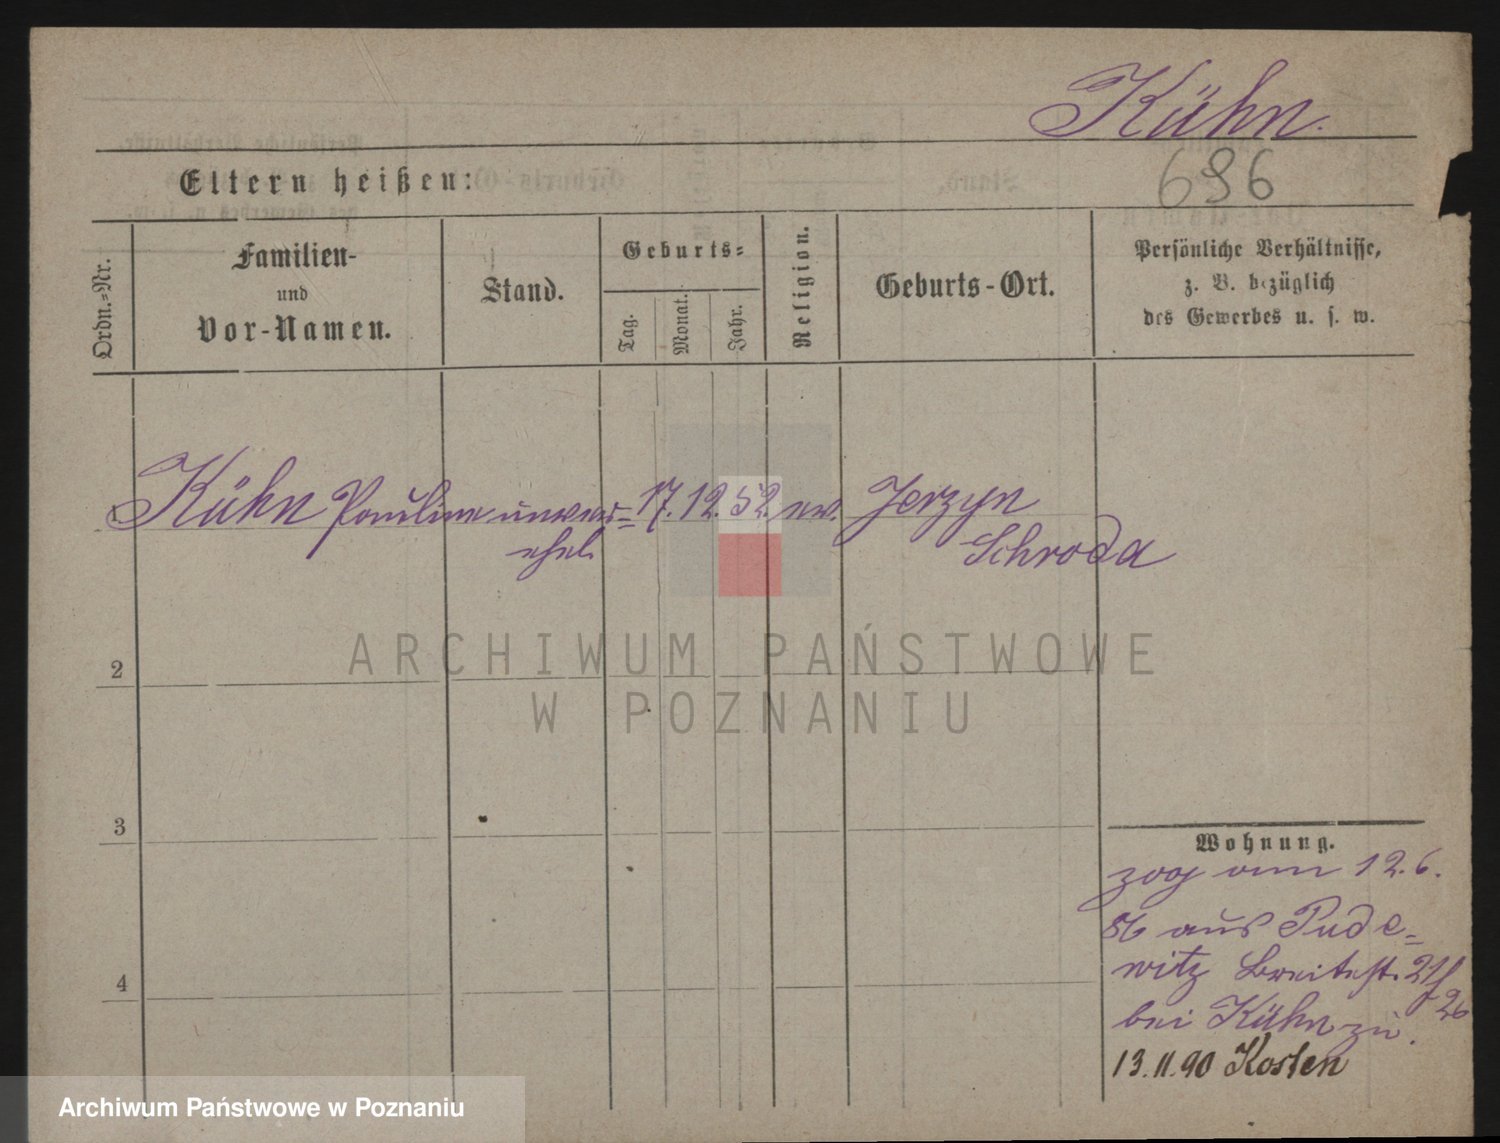 Kühn.
696
Eltern heißen:
Ordn.=Nr.
Familien-
und
Vor-Namen.
Stand.
Geburts=
Tag.
Monat.
Jahr.
Religion.
Geburts-Ort.
Persönliche Verhältnisse,
z. B. bezüglich
des Gewerbes u. s. w.
1 Kühn Pauline unver= 17. 12. 52. ev. Jerzyn
ehel. Schroda
2
ARCHIWUM PAŃSTWOWE
W POZNANIU
3
Wohnung.
zog am 12. 6.
86 aus Pude=
witz Breitestr. 21/
26
bei Kühn zu.
4
13. 11. 90 Kosten
Archiwum Państwowe w Poznaniu